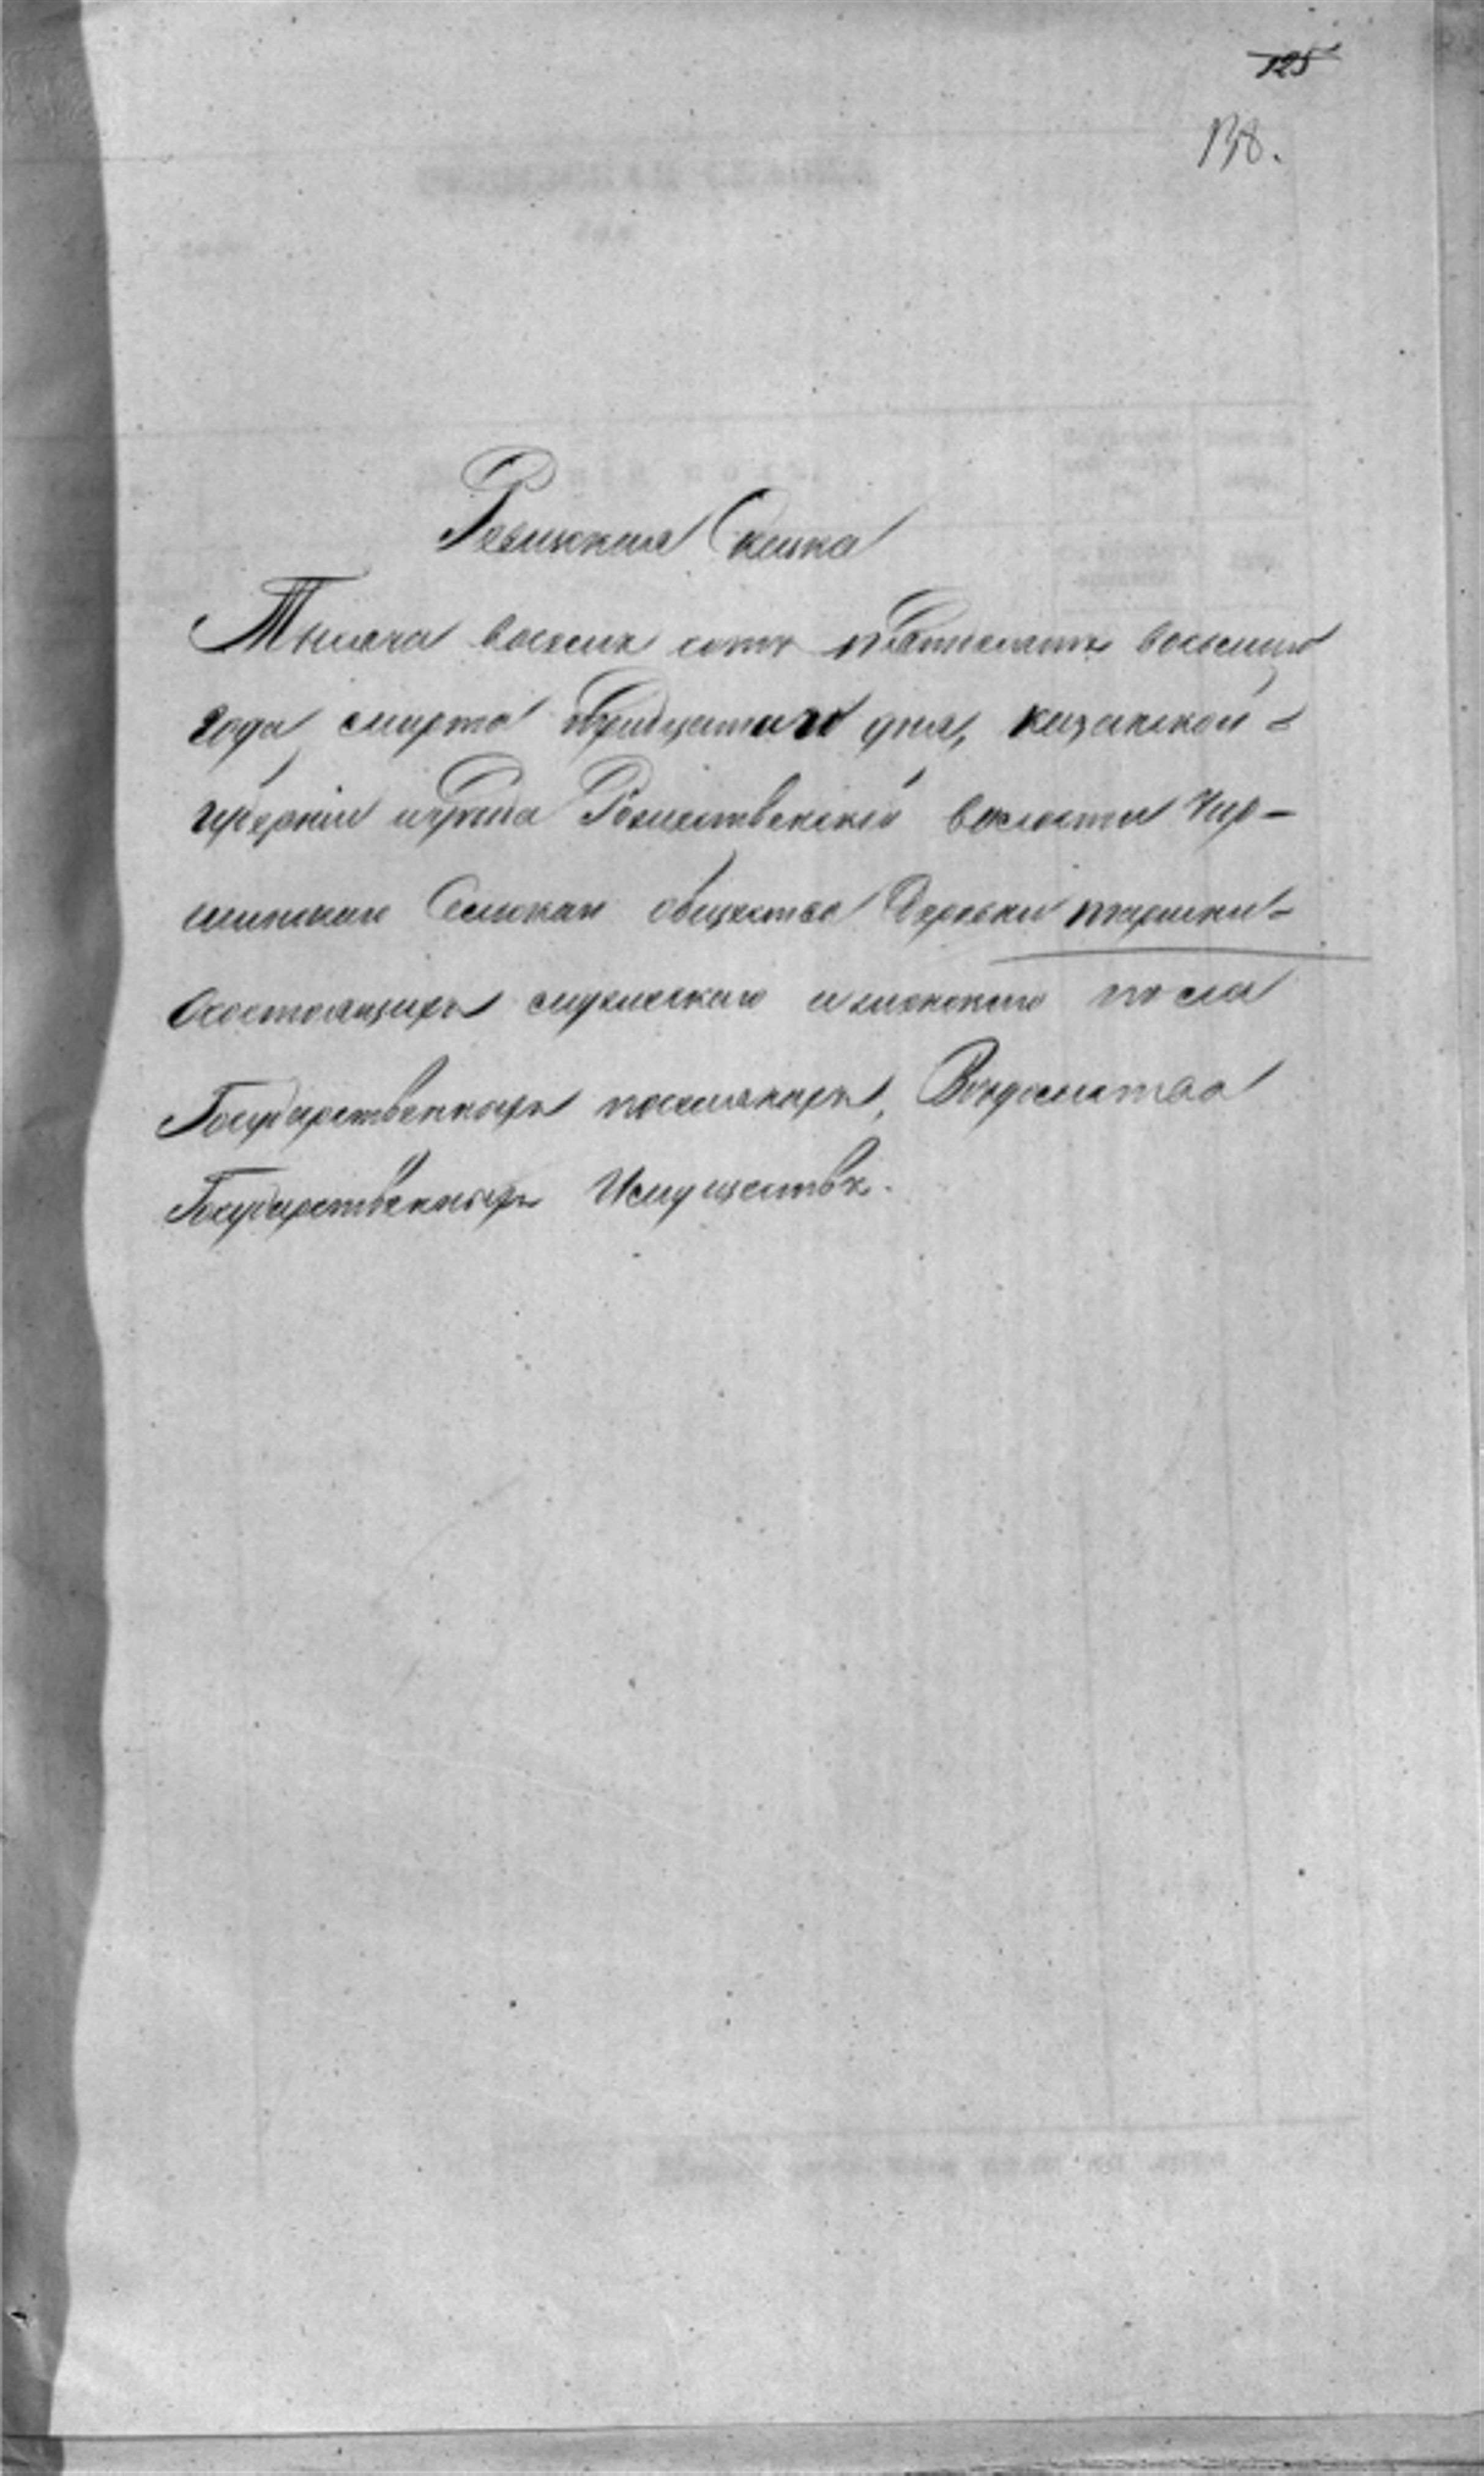 125
138.
Ревизская Сказка
Тысяча восемь сотъ пятдесятъ восьмаго
года марта тридцатаго дня, Казанской
губерніи и уѣзда Рождественской волости Чир-
шинскаго Сельскаго общества Деревни
Осостоящихъ мужескаго и женскаго пола
Государственныхъ поселянахъ, Вѣдомства
Государственныхъ Имуществъ.